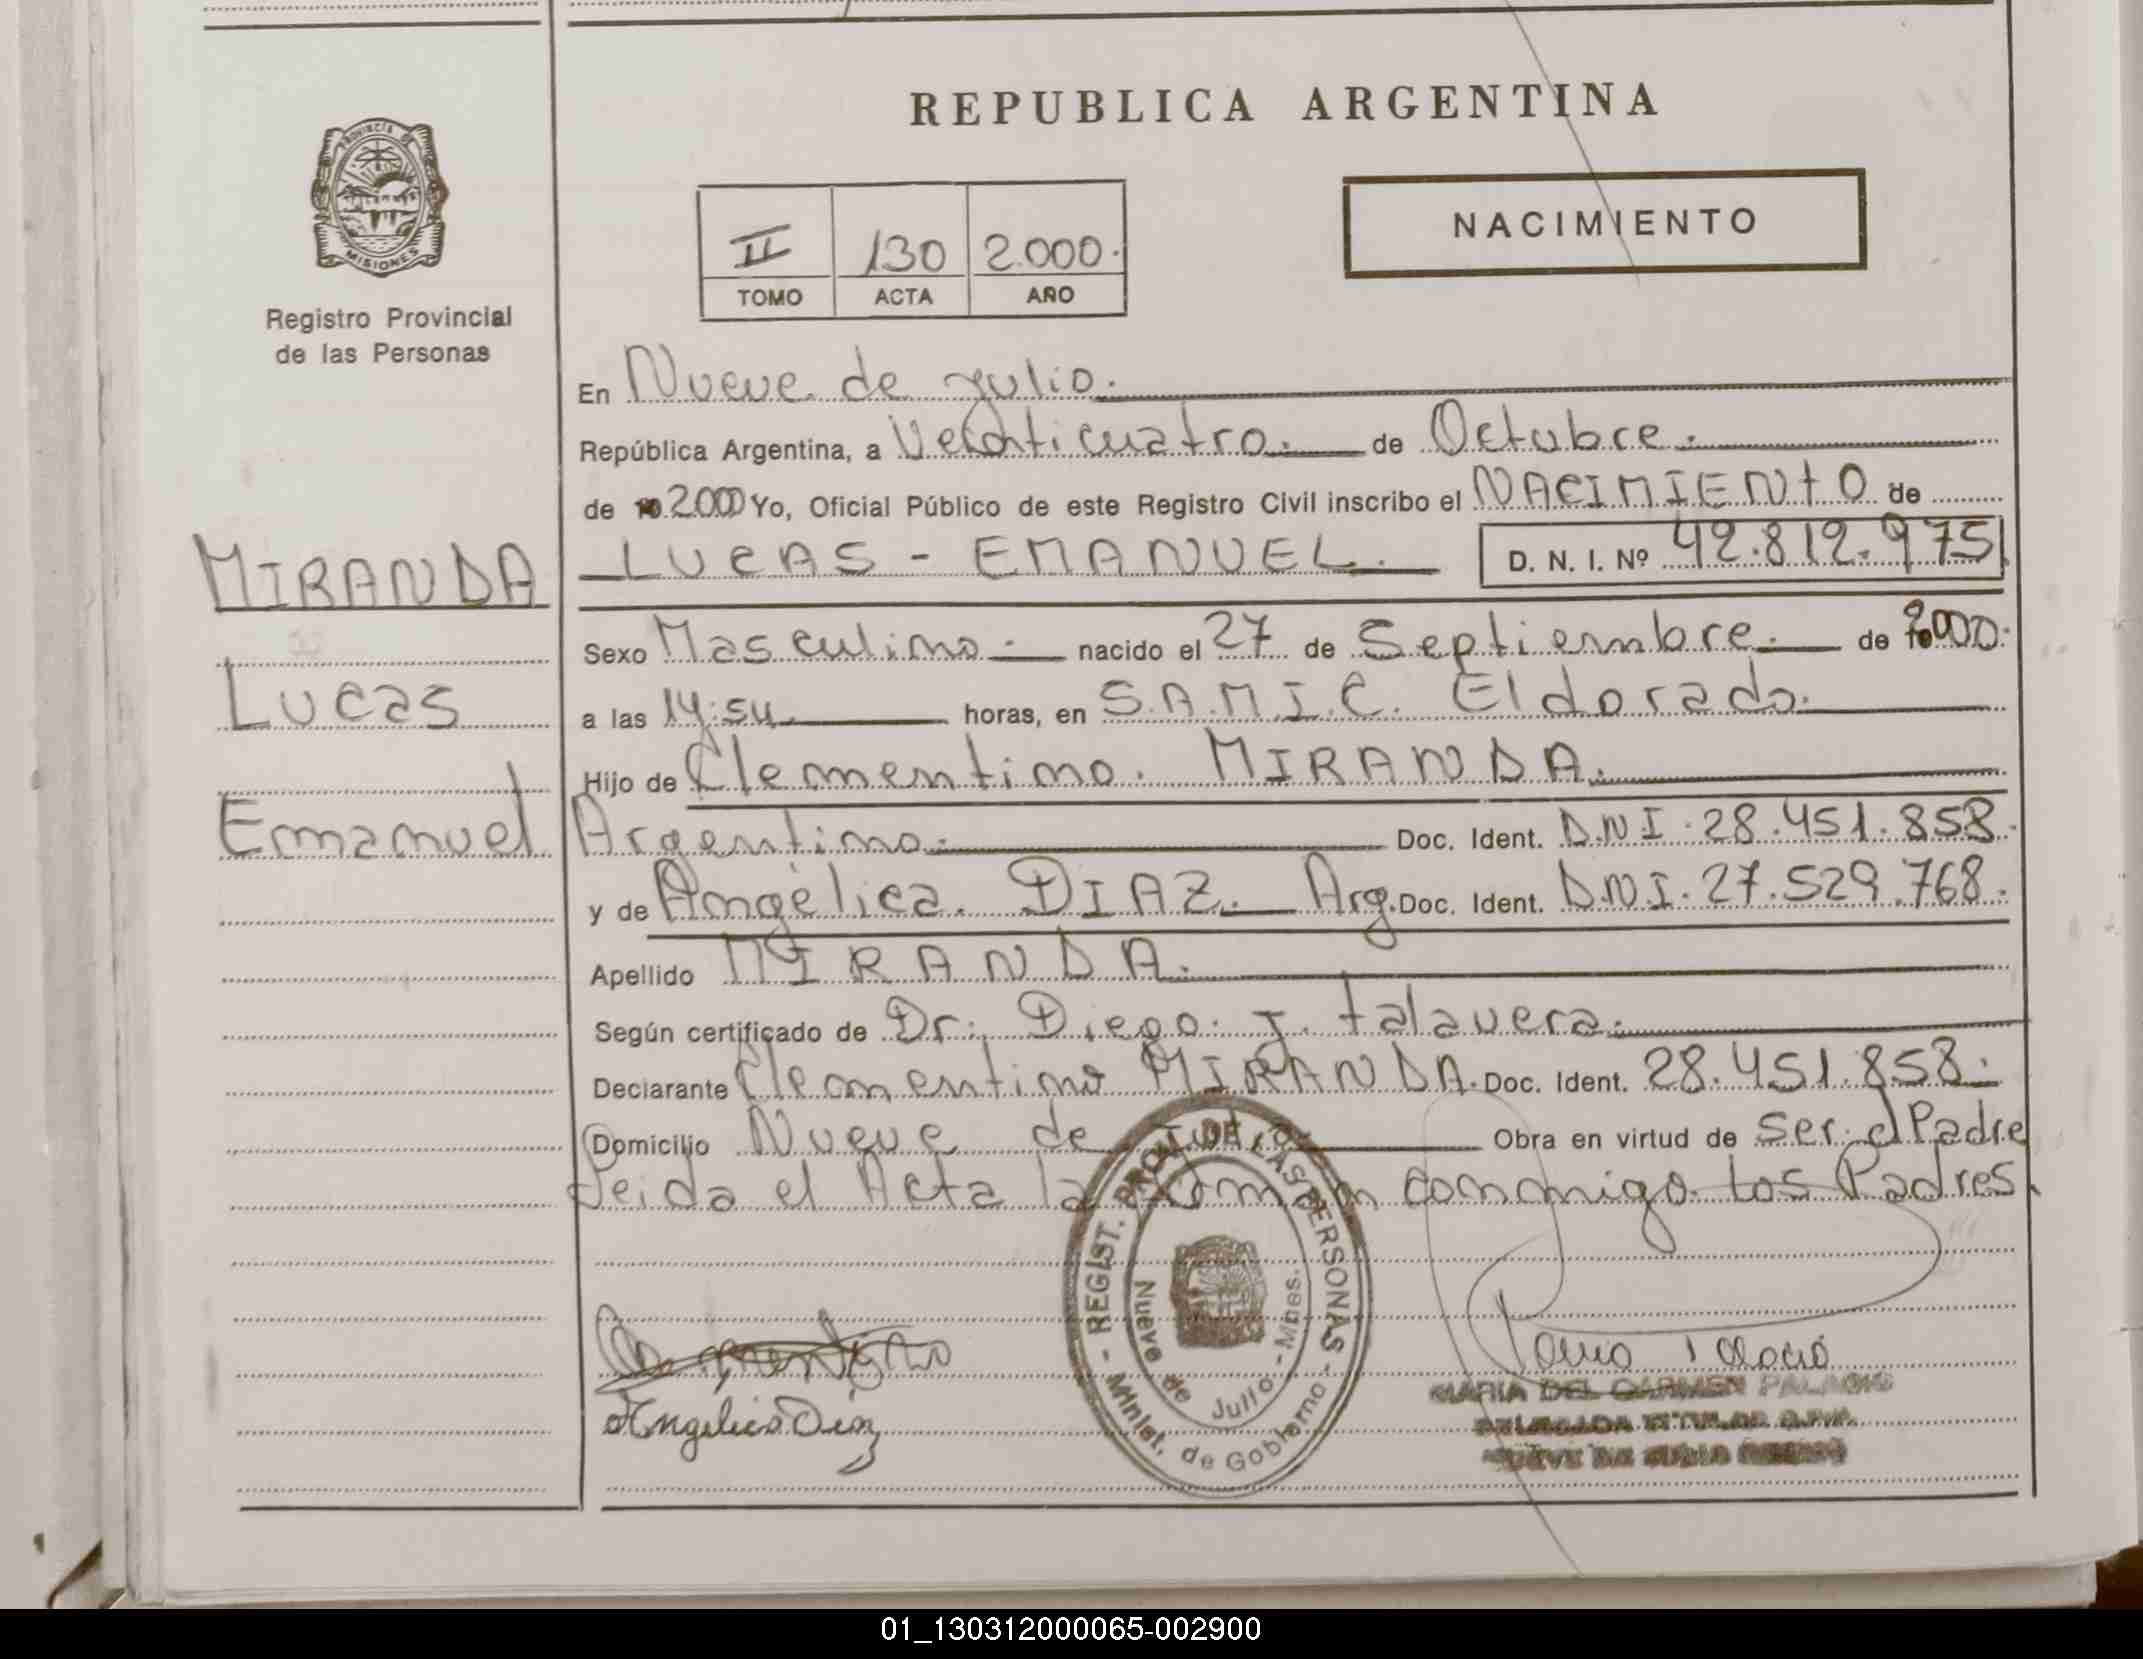 REPUBLICA ARGENTINA
PROVINCIA DE MISIONES
Registro Provincial
de las Personas
II 130 2.000.
TOMO ACTA AÑO
NACIMIENTO
En Nueve de Julio.
República Argentina, a Veinticuatro. de Octubre.
de 2.000 Yo, Oficial Público de este Registro Civil inscribo el NACIMIENTO de
LUCAS - EMANUEL. D. N. I. Nº 42.812.975
MIRANDA
Lucas
Emanuel
Sexo Masculino. nacido el 27 de Septiembre. de 2000.
a las 14:54 horas, en S.A.M.I.C. Eldorado.
Hijo de Clementino. MIRANDA.
Argentino. Doc. Ident. D.N.I. 28.451.858.
y de Angélica. DIAZ. Arg. Doc. Ident. D.N.I. 27.529.768.
Apellido MIRANDA.
Según certificado de Dr. Diego. J. Talavera.
Declarante Clementino MIRANDA. Doc. Ident. 28.451.858.
Domicilio Nueve de Obra en virtud de ser el Padre
Leida el Acta la conmigo los Padres.
REGIST. PROV. DE LAS PERSONAS
Nueve de Julio - Mnes.
Minist. de Gobierno
Angelica Diaz
MARIA DEL CARMEN PALACIO
01_130312000065-002900